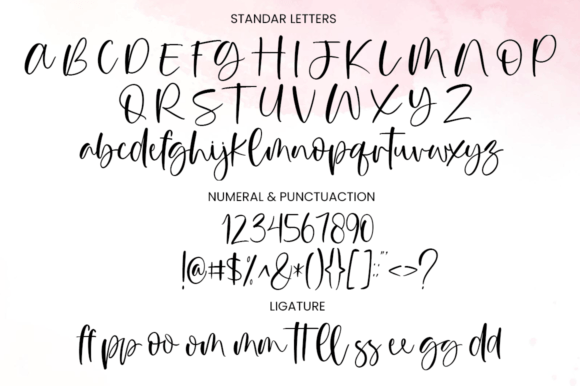 STANDAR LETTERS
A B C D E F G H I J K L M N O P
Q R S T U V W X Y Z
abcdefghijklmnopqrstuvwxyz
NUMERAL & PUNCTUACTION
1234567890
!@#$%^&*(){}[]:;"'<>?
LIGATURE
ff pp oo om mm tt ll ss ee gg dd